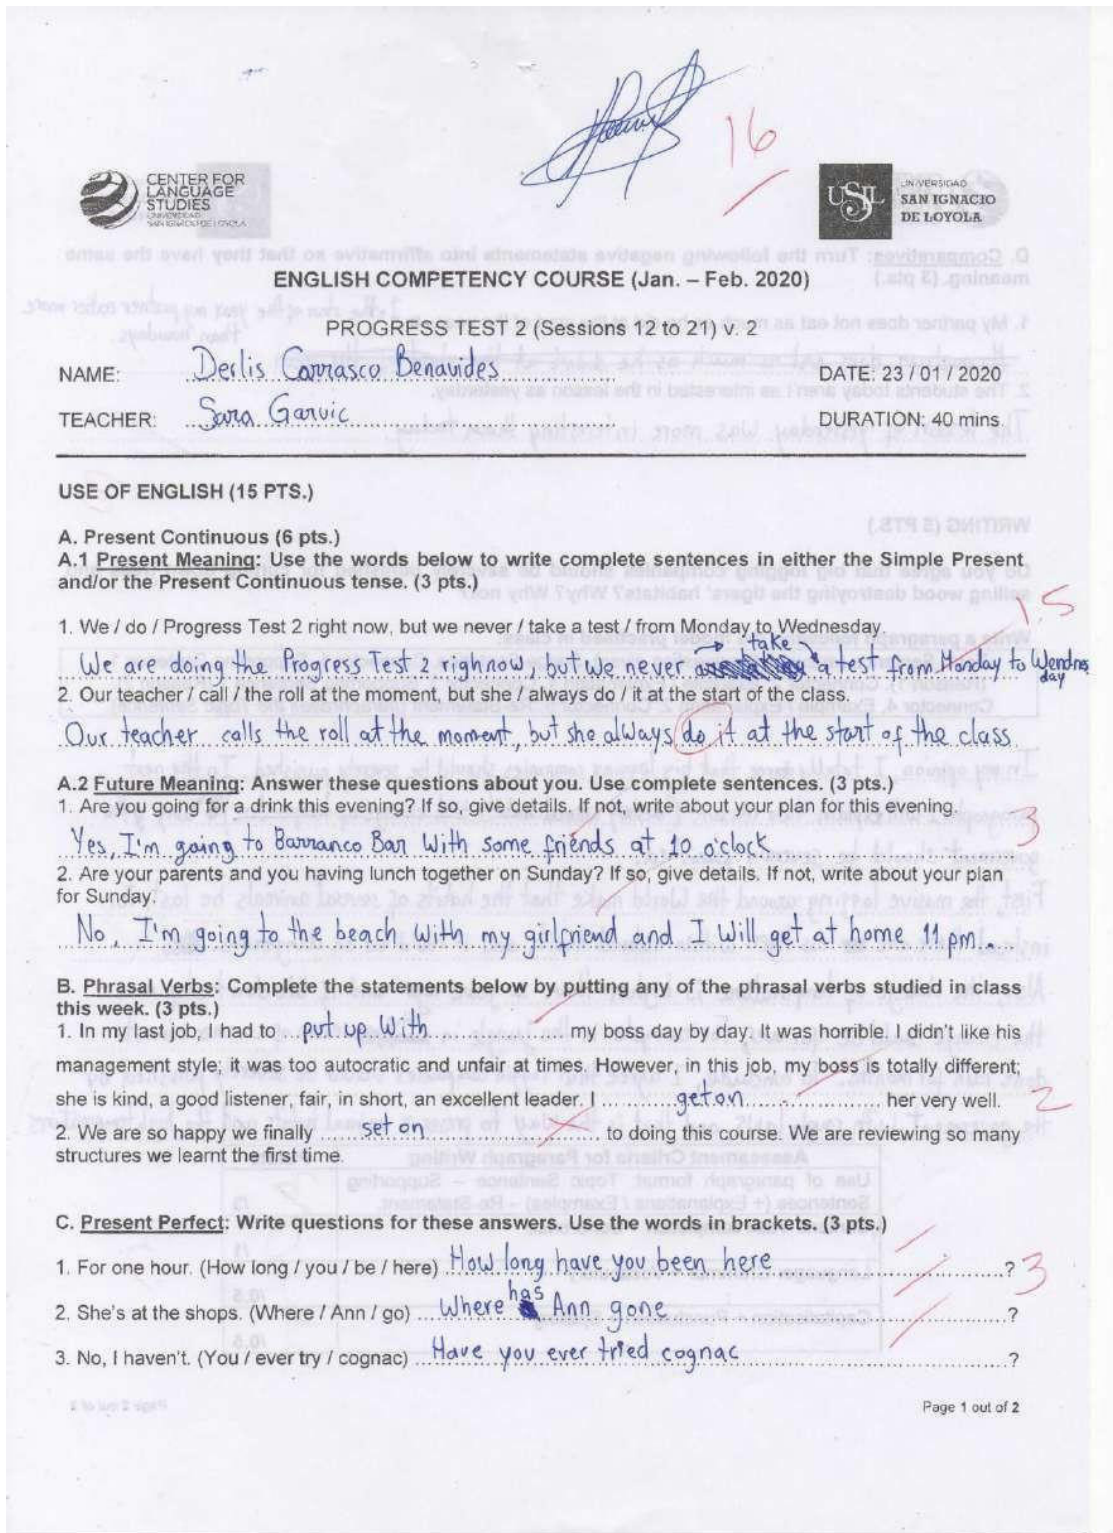 16
CENTER FOR
LANGUAGE
STUDIES
UNIVERSIDAD
SAN IGNACIO DE LOYOLA
USIL
UNIVERSIDAD
SAN IGNACIO
DE LOYOLA
ENGLISH COMPETENCY COURSE (Jan. – Feb. 2020)
PROGRESS TEST 2 (Sessions 12 to 21) v. 2
NAME: Derlis Carrasco Benavides
DATE: 23 / 01 / 2020
TEACHER: Sara Garvic
DURATION: 40 mins.
USE OF ENGLISH (15 PTS.)
A. Present Continuous (6 pts.)
A.1 Present Meaning: Use the words below to write complete sentences in either the Simple Present
and/or the Present Continuous tense. (3 pts.)
1.5
1. We / do / Progress Test 2 right now, but we never / take a test / from Monday to Wednesday.
We are doing the Progress Test 2 righ now, but we never take a test from Monday to Wendnesday
2. Our teacher / call / the roll at the moment, but she / always do / it at the start of the class.
Our teacher calls the roll at the moment, but she always do it at the start of the class
A.2 Future Meaning: Answer these questions about you. Use complete sentences. (3 pts.)
1. Are you going for a drink this evening? If so, give details. If not, write about your plan for this evening.
3
Yes, I'm going to Barranco Bar with some friends at 10 o'clock
2. Are your parents and you having lunch together on Sunday? If so, give details. If not, write about your plan
for Sunday.
No, I'm going to the beach with my girlfriend and I will get at home 11 pm.
B. Phrasal Verbs: Complete the statements below by putting any of the phrasal verbs studied in class
this week. (3 pts.)
1. In my last job, I had to put up with my boss day by day. It was horrible. I didn't like his
management style; it was too autocratic and unfair at times. However, in this job, my boss is totally different;
she is kind, a good listener, fair, in short, an excellent leader. I get on her very well. 2
2. We are so happy we finally set on to doing this course. We are reviewing so many
structures we learnt the first time.
C. Present Perfect: Write questions for these answers. Use the words in brackets. (3 pts.)
1. For one hour. (How long / you / be / here) How long have you been here ? 3
2. She's at the shops. (Where / Ann / go) Where has Ann gone ?
3. No, I haven't. (You / ever try / cognac) Have you ever tried cognac ?
Page 1 out of 2